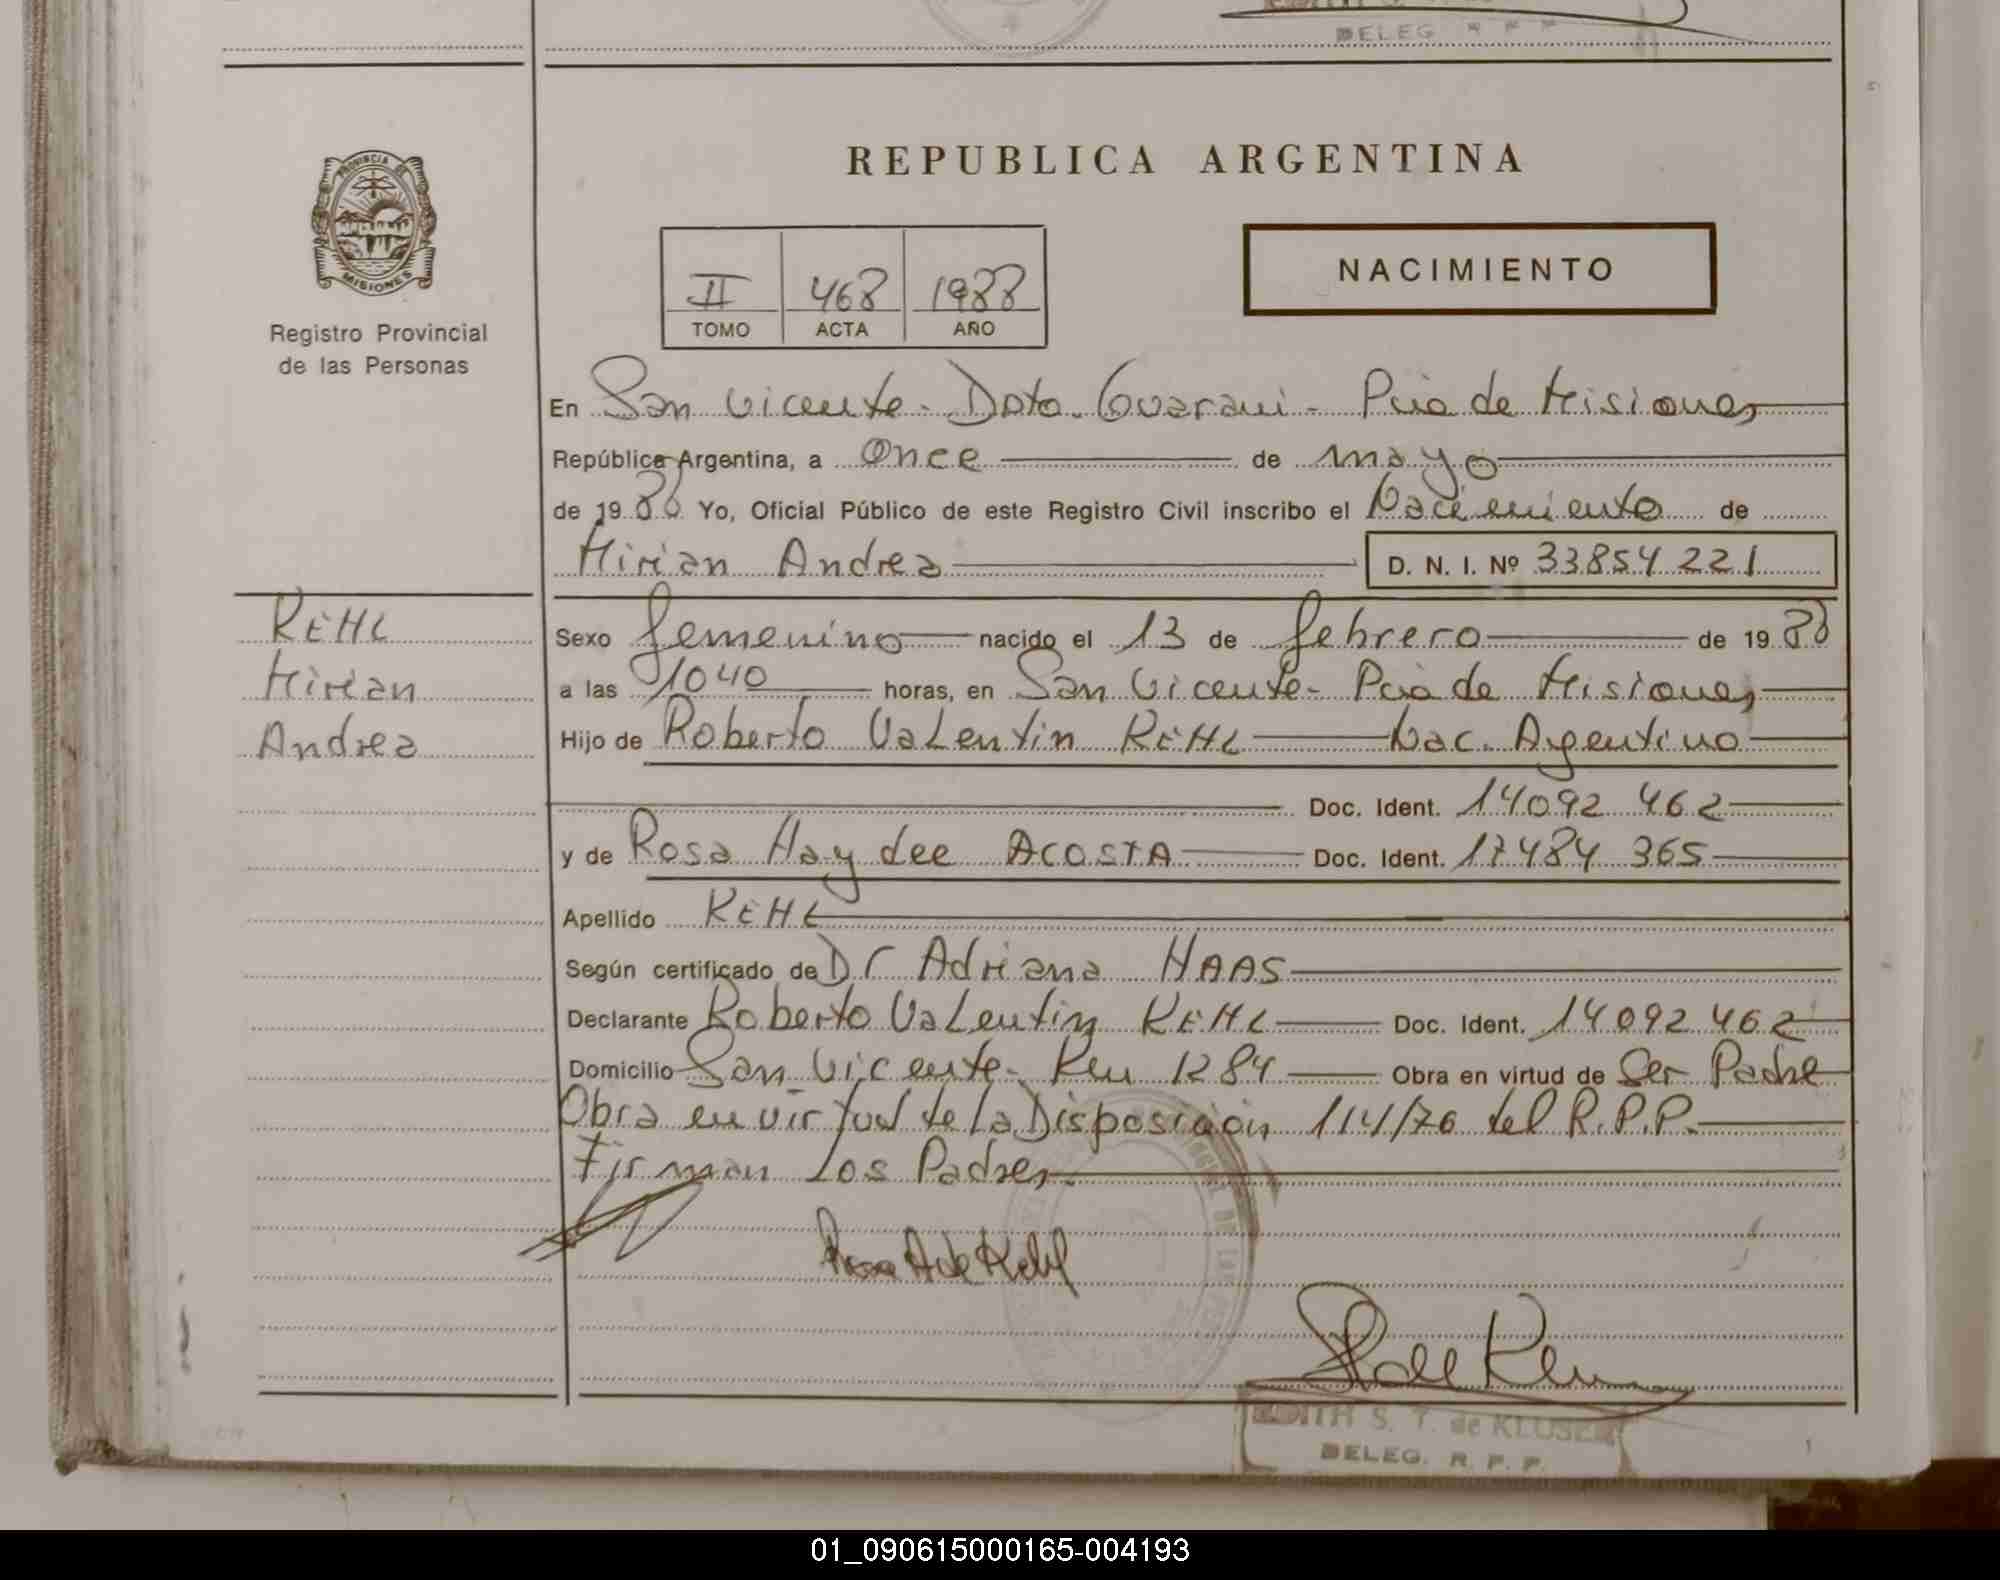 DELEG. R P P
PROVINCIA DE
MISIONES
Registro Provincial
de las Personas
REPUBLICA ARGENTINA
NACIMIENTO
II 468 1988
TOMO ACTA AÑO
En San Vicente - Dpto. Guarani - Pcia de Misiones
República Argentina, a Once de mayo
de 1988 Yo, Oficial Público de este Registro Civil inscribo el Nacimiento de
Mirian Andrea D. N. I. Nº 33854221
KEHL
Mirian
Andrea
Sexo femenino nacido el 13 de febrero de 1988
a las 1040 horas, en San Vicente - Pcia de Misiones
Hijo de Roberto Valentin KEHL Nac. Argentino
Doc. Ident. 14092462
y de Rosa Haydee ACOSTA Doc. Ident. 17484365
Apellido KEHL
Según certificado de Dr Adriana HAAS
Declarante Roberto Valentin KEHL Doc. Ident. 14092462
Domicilio San Vicente - Km 1284 Obra en virtud de Ser Padre
Obra en virtud de la Disposición 114/76 del R.P.P.
Firman los Padres.
Rosa A de Kehl
EDITH S. T. de KLUSER
DELEG. R. P. P.
01_090615000165-004193